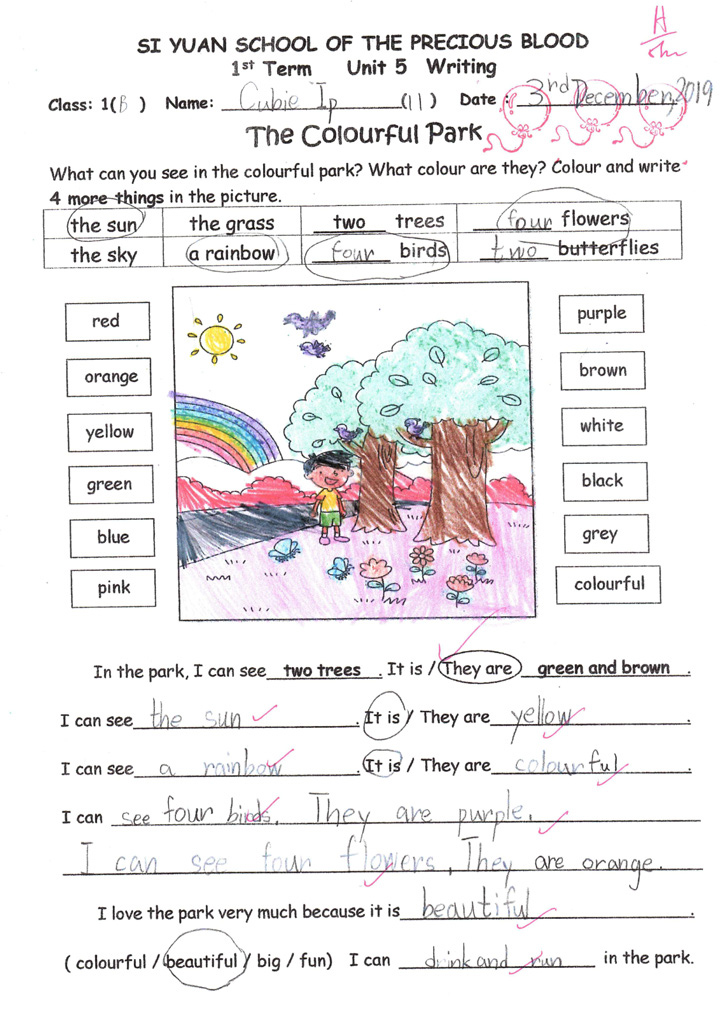 A
SI YUAN SCHOOL OF THE PRECIOUS BLOOD
1st Term Unit 5 Writing
Class: 1(B) Name: Cubie Ip (11) Date: 3rd December, 2019
The Colourful Park
What can you see in the colourful park? What colour are they? Colour and write
4 more things in the picture.
the sun the grass two trees four flowers
the sky a rainbow four birds two butterflies
red purple
orange brown
yellow white
green black
blue grey
pink colourful
In the park, I can see two trees. It is / They are green and brown.
I can see the sun. It is / They are yellow.
I can see a rainbow. It is / They are colourful.
I can see four birds. They are purple.
I can see four flowers. They are orange.
I love the park very much because it is beautiful.
( colourful / beautiful / big / fun) I can drink and run in the park.